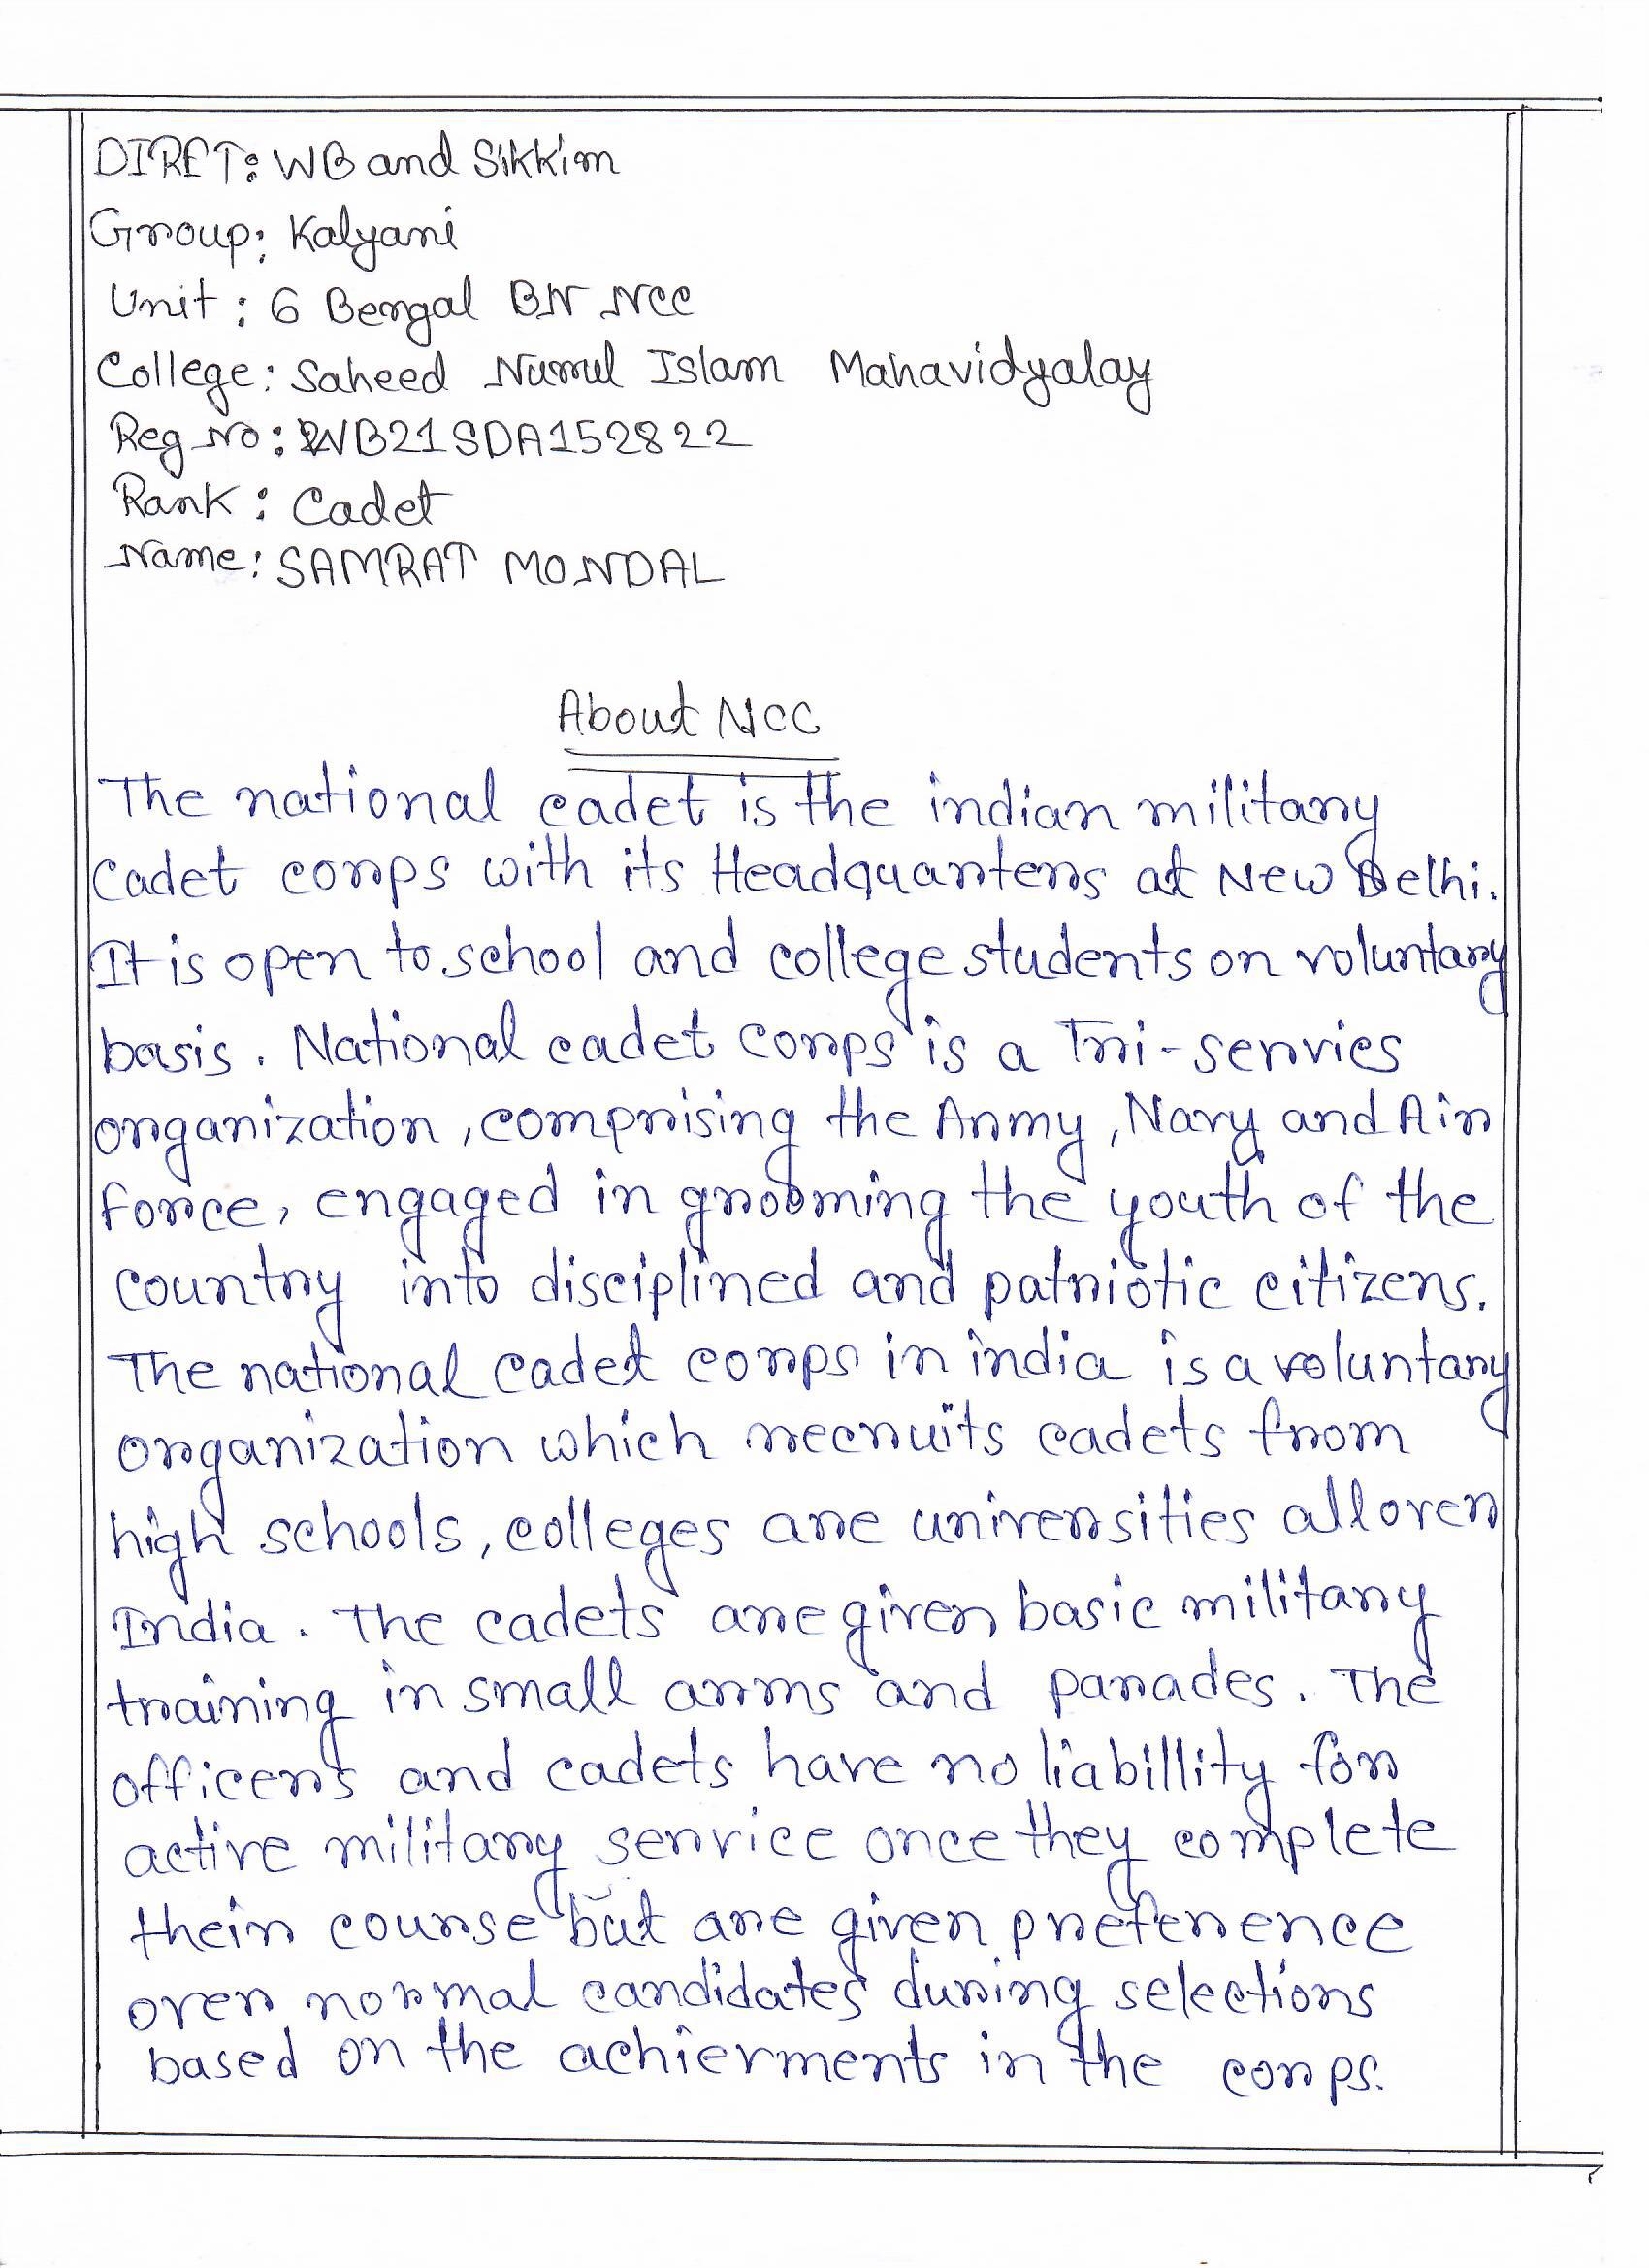 DIRET: WB and Sikkim
Group: Kalyani
Unit: 6 Bengal BN NCC
College: Saheed Nurul Islam Mahavidyalay
Reg No: WB21SDA152822
Rank: Cadet
Name: SAMRAT MONDAL
About NCC
The national cadet is the indian military
cadet corps with its Headquarters at New Delhi.
It is open to school and college students on voluntary
basis. National cadet corps is a Tri-servies
organization, comprising the Army, Navy and Air
force, engaged in grooming the youth of the
country into disciplined and patriotic citizens.
The national cadet corps in india is a voluntary
organization which recruits cadets from
high schools, colleges are universities all over
India. The cadets are given basic military
training in small arms and parades. The
officers and cadets have no liabillity for
active military service once they complete
their course but are given preference
over normal candidates during selections
based on the achierments in the corps.